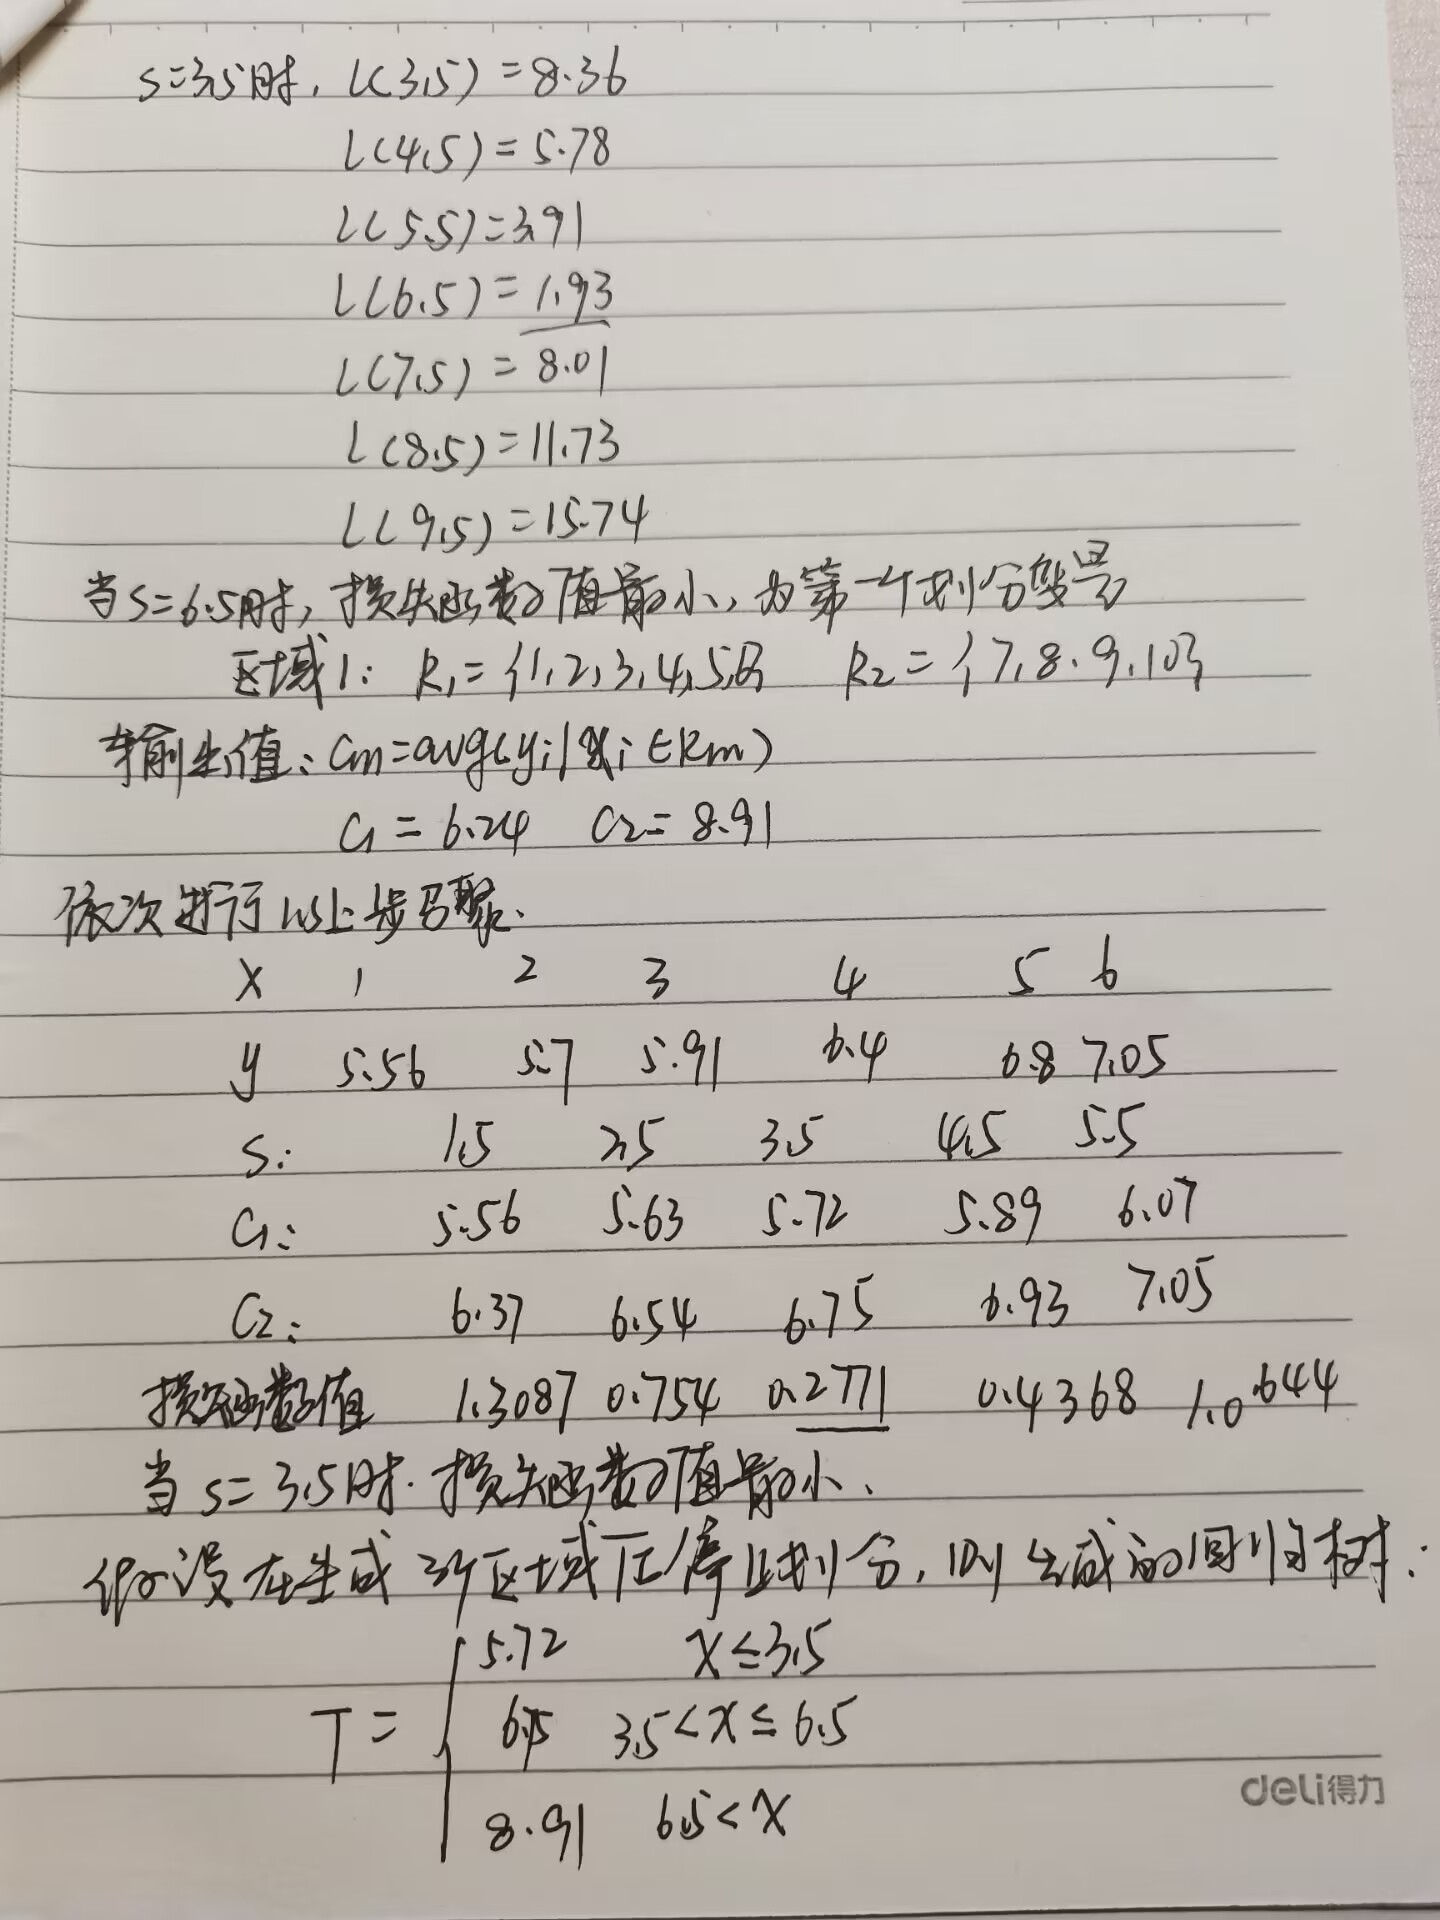 s=3.5时, L(3.5)=8.36
L(4.5)=5.78
L(5.5)=3.91
L(6.5)=1.93
L(7.5)=8.01
L(8.5)=11.73
L(9.5)=15.74
当s=6.5时,损失函数值最小,为第一个划分变量
区域1: R₁={1,2,3,4,5,6} R₂={7,8.9.10}
输出值: Cm=avg(yi|xi∈Rm)
C₁=6.24 C₂=8.91
依次进行以上步骤.
X 1 2 3 4 5 6
y 5.56 5.7 5.91 6.4 6.8 7.05
S: 1.5 2.5 3.5 4.5 5.5
C₁: 5.56 5.63 5.72 5.89 6.07
C₂: 6.37 6.54 6.75 6.93 7.05
损失函数值 1.3087 0.754 0.2771 0.4368 1.0644
当s=3.5时.损失函数值最小.
假设在生成3个区域后停止划分,则生成的回归树:
5.72 X≤3.5
T= 6.75 3.5<X≤6.5
8.91 6.5<X
deli得力